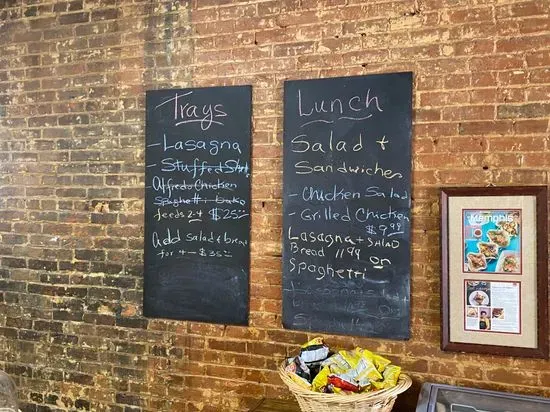 Trays
- Lasagna
- Stuffed
Alfredo Chicken
Spaghetti bake
feeds 2-4 $25
Add salad + bread
for 4 - $35
Lunch
Salad +
Sandwiches
- Chicken Salad
- Grilled Chicken
$9.99
Lasagna + SALAD
Bread 11 99 or
Spaghetti
Memphis